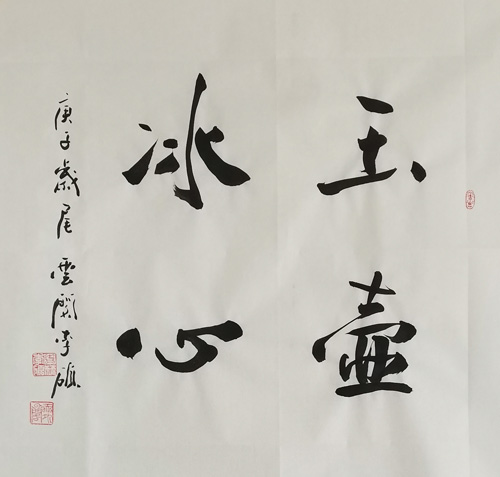 玉壺
冰心
庚子歲尾 雲 李